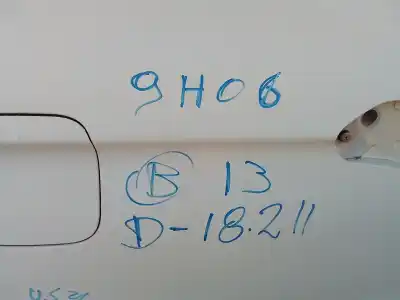 9H06
B 13
D-18.211